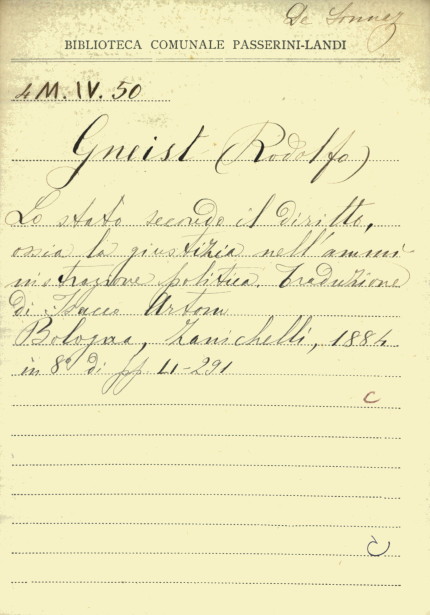 De Sonnaz
BIBLIOTECA COMUNALE PASSERINI-LANDI
4M. IV. 50
Gneist (Rodolfo)
Lo stato secondo il diritto,
ossia la giustizia nell'ammi-
nistrazione politica. Traduzione
di Isacco Artom
Bologna, Zanichelli, 1884
in 8° di pp LI-291
C
C